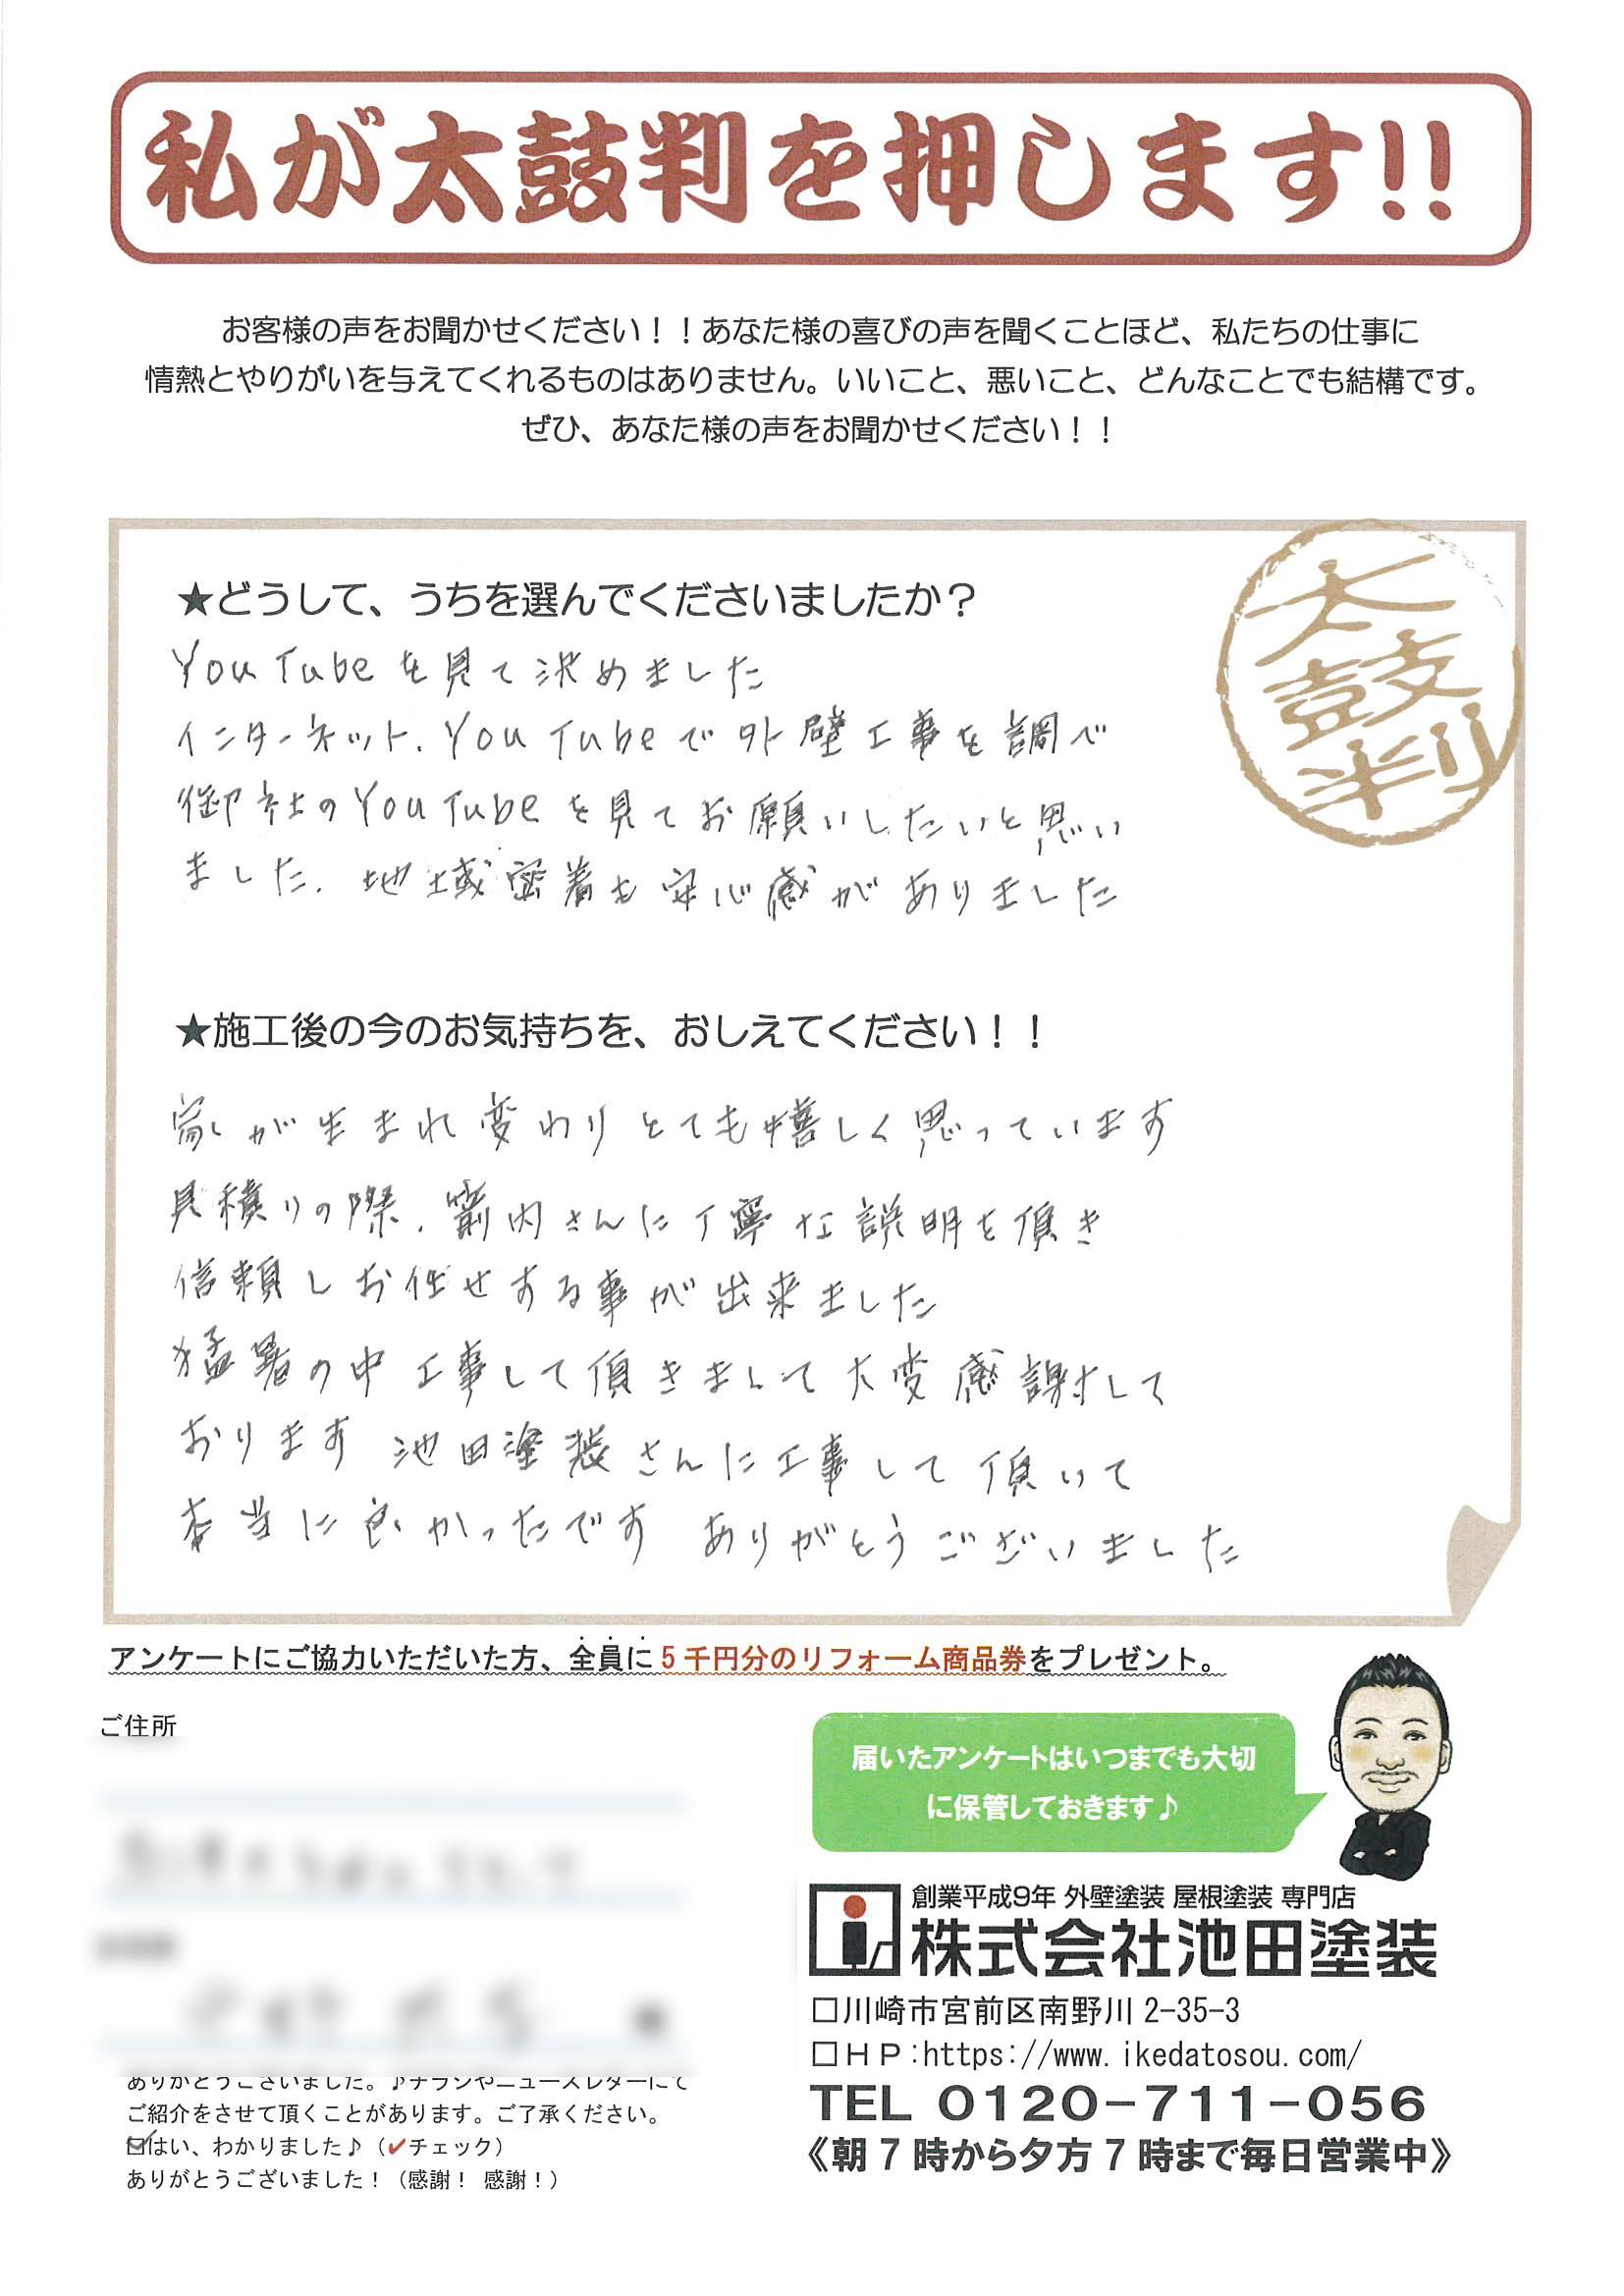 私が太鼓判を押します!!
お客様の声をお聞かせください！！あなた様の喜びの声を聞くことほど、私たちの仕事に
情熱とやりがいを与えてくれるものはありません。いいこと、悪いこと、どんなことでも結構です。
ぜひ、あなた様の声をお聞かせください！！
太鼓判
★どうして、うちを選んでくださいましたか？
YouTubeを見て決めました
インターネット、YouTubeで外壁工事を調べ
御社のYouTubeを見てお願いしたいと思い
ました。地域密着も安心感がありました
★施工後の今のお気持ちを、おしえてください！！
家が生まれ変わりとても嬉しく思っています
見積りの際、箭内さんに丁寧な説明を頂き
信頼しお任せする事が出来ました
猛暑の中工事して頂きまして大変感謝して
おります 池田塗装さんに工事して頂いて
本当に良かったです ありがとうございました
アンケートにご協力いただいた方、全員に5千円分のリフォーム商品券をプレゼント。
ご住所
届いたアンケートはいつまでも大切
に保管しておきます♪
創業平成9年 外壁塗装 屋根塗装 専門店
株式会社池田塗装
□川崎市宮前区南野川2-35-3
□HP:https://www.ikedatosou.com/
TEL 0120-711-056
《朝7時から夕方7時まで毎日営業中》
ありがとうございました。♪チラシやニュースレターにて
ご紹介をさせて頂くことがあります。ご了承ください。
☑はい、わかりました♪（✔チェック）
ありがとうございました！（感謝！ 感謝！）